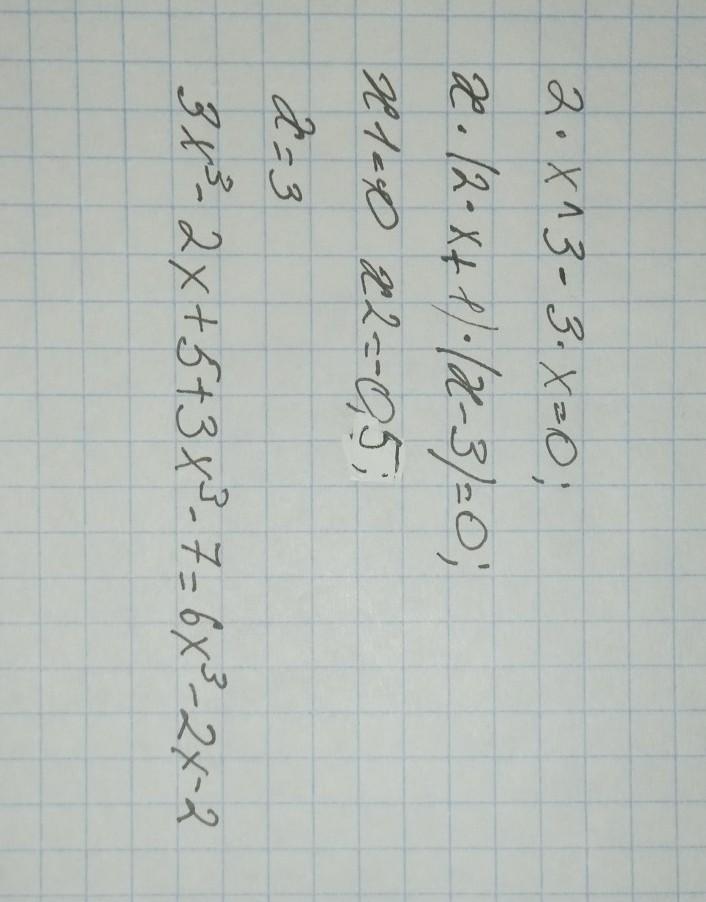 2·x^3-3·x=0;
x·(2·x+1)·(x-3)=0;
x1=0 x2=-0,5;
x=3
3x³-2x+5+3x³-7=6x³-2x-2